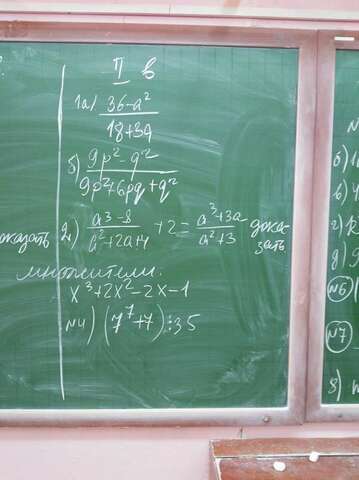 II в
1а) (36-a²)/(18+3a)
б) (9p²-q²)/(9p²+6pq+q²)
2) (a³-8)/(a²+2a+4) +2= (a³+3a)/(a²+3) дока-
зать
множители:
x³+2x²-2x-1
№4) (7⁷+7)⋮35
№6
№7